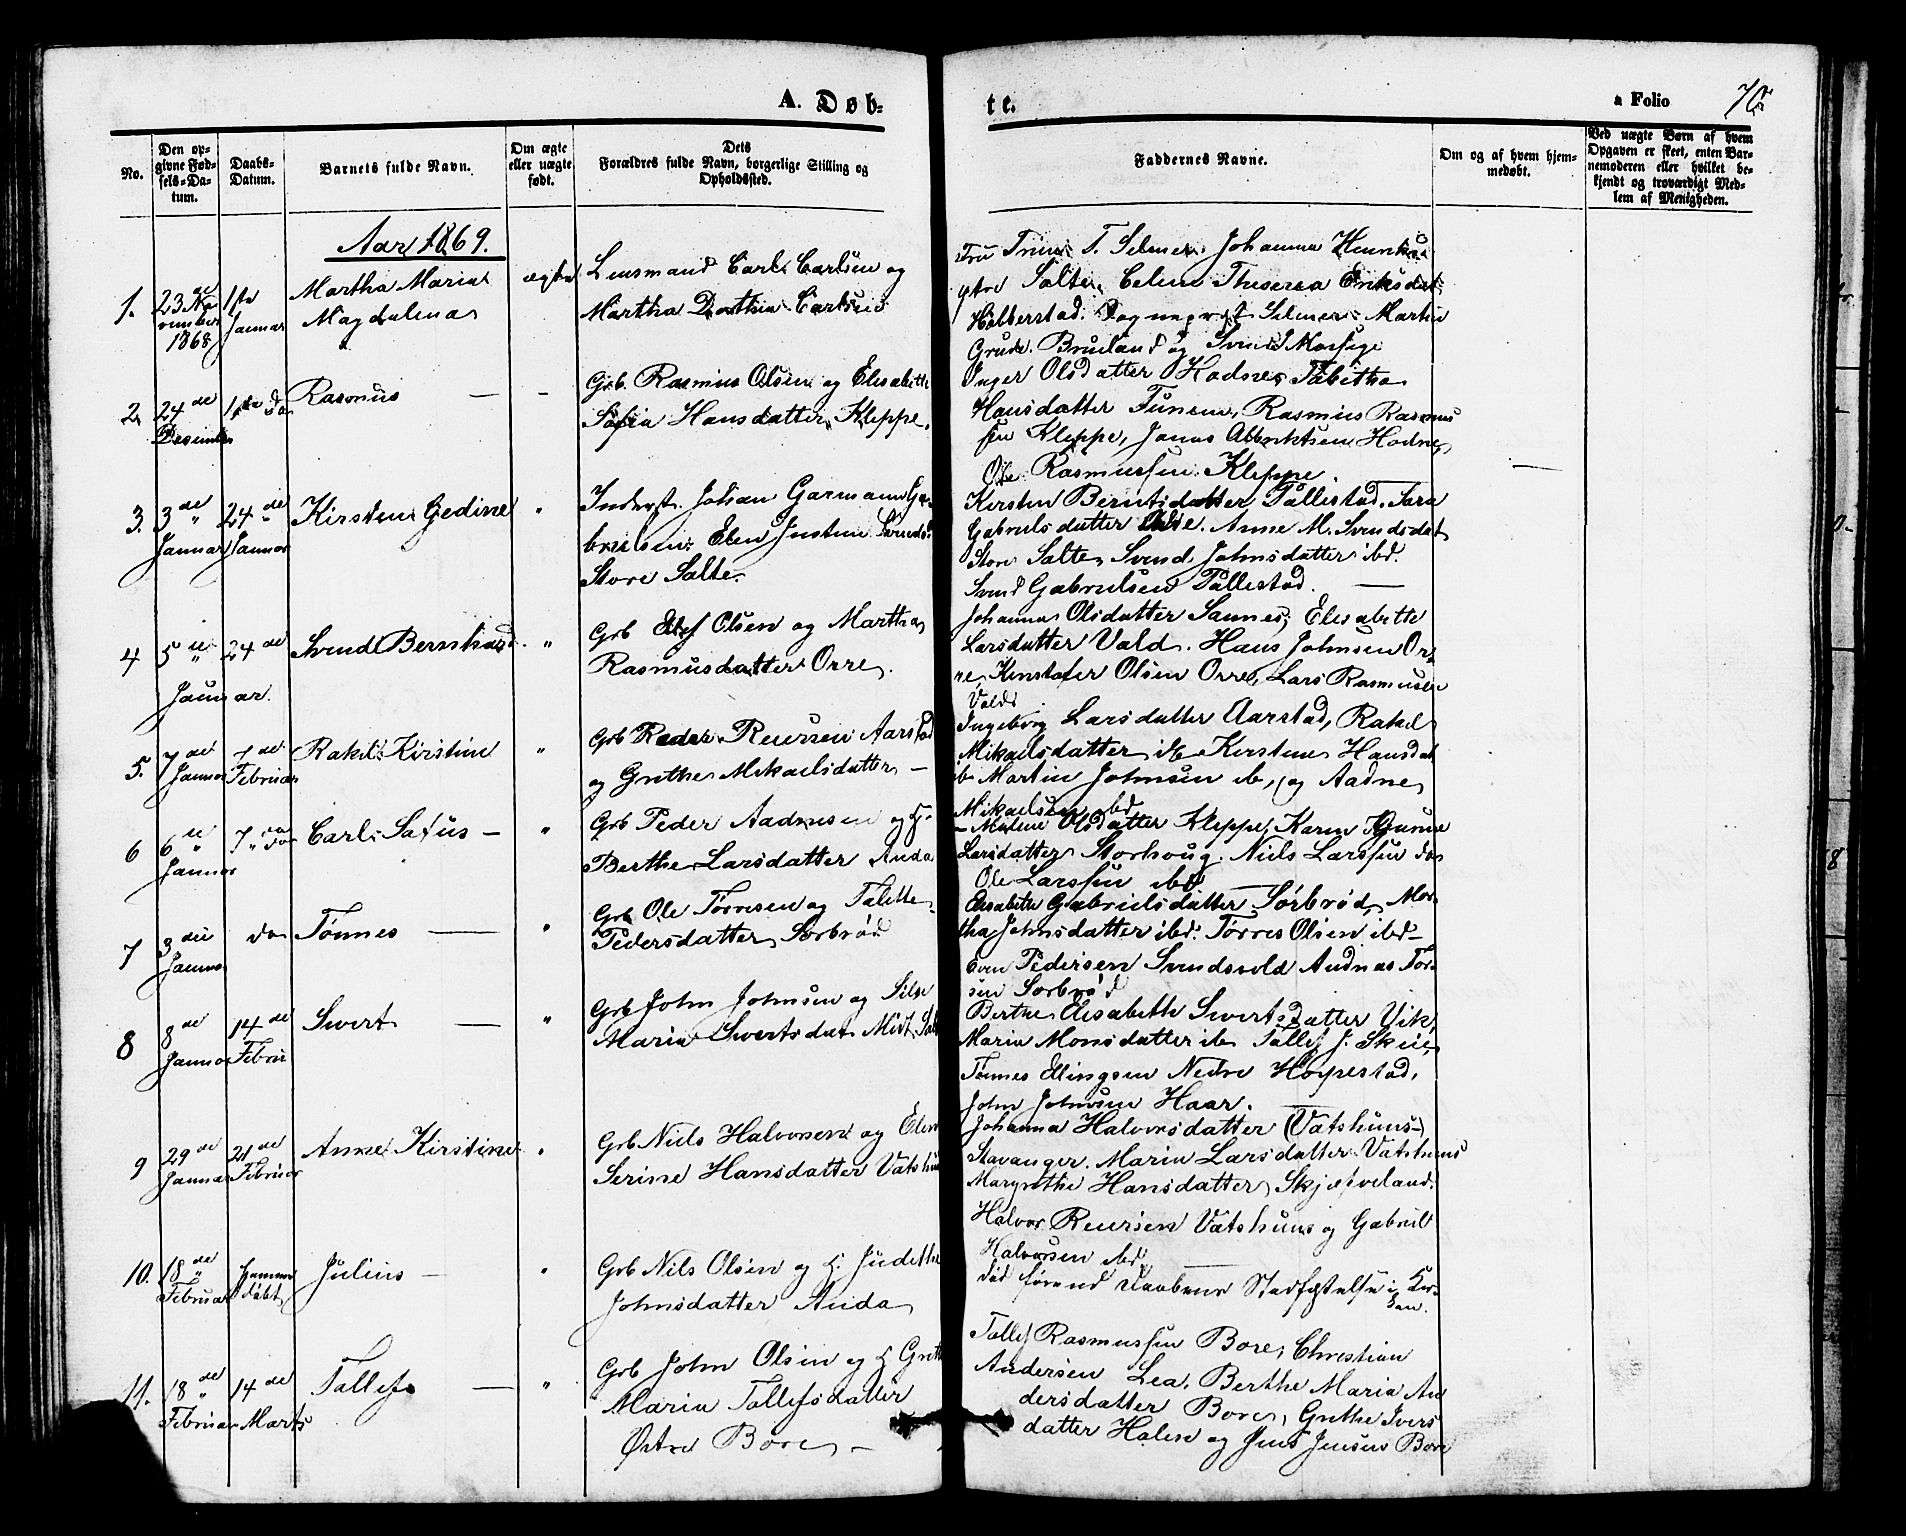 A. Døb-
te.
a Folio
No.
Den op-
givne Fød-
sels-Da-
tum.
Daabs-
Datum.
Barnets fulde Navn.
Om ægte
eller uægte
født.
Dets
Forældres fulde Navn, borgerlige Stilling og
Opholdssted.
Faddernes Navne.
Om og af hvem hjem-
medøbt.
Ved uægte Børn af hvem
Opgaven er skeet, enten Bar-
nemoderen eller hvilket be-
kjendt og troværdigt Med-
lem af Menigheden.
Aar 1869.
1.
23de No
vember
1868
1ste
Januar
Martha Maria
Magdalena
ægte
Lensmand Carl Carlsen og
Martha Dorthea Carlsen
Fru Trine T. Selmer, Johanna Henriks
Salte, Celine Theserea Eriksdat
Holberstad. Selmer Martin
Grude. Brueland og Svend Mossige
2.
24de
Desember
1ste do
Rasmus —
-
Grb. Rasmus Olsen og Elisabeth
Sofia Hansdatter, Kleppe.
Inger Olsdatter Hodne, Tabitha
Hansdatter Tunem, Rasmus Rasmus
sen Kleppe, Jonas Albriktsen Hodne,
Ole Rasmussen Kleppe.
3.
3de "
Januar
24de
Januar
Kirsten Gedine
"
Inderst. Johan Garmann Ga-
brielsen Elen Justine Svends.
Store Salte.
Kirsten Berntsdatter Tallestad. Sara
Gabrielsdatter Anne M. Svendsdat
Store Salte, Svend Johnsdatter ibd.
Svend Gabrielsen Tallestad. —
4
5te "
Januar.
24de
Svend Bernhard
"
Grb Olsen og Martha
Rasmusdatter Orre.
Johanna Olsdatter Sannes, Elisabeth
Larsdatter Vald. Hans Johnsen Or-
re, Kristofer Olsen Orre, Lars Rasmusen
Vald
5.
7de
Januar
7de
Februar
Rakel Kirstine
"
Grb Peder Reiersen Aarstad
og Grethe Mikaelsdatter —
Ingeborg Larsdatter Aarstad, Rakel
Mikaelsdatter ib Kirstine Hansdat
ib Martin Johnsen ib, og Aadne
Mikaelsen ibd
6
6te "
Januar
7" do
Carl Satus —
"
Grb Peder Aadnesen og H.
Berthe Larsdatter Anda
— Malene Olsdatter Kleppe, Karen Gunne
Larsdatter Storhoug. Niels Larssen do
Ole Larssen ibd
7
3die
Januar
do
Tønnes —
"
Grb Ole Torresen og Talette
Pedersdatter Sørbrød
Elisabeth Gabrielsdatter Sørbrød, Mar
tha Johnsdatter ibd. Torres Olsen ibd —
Sven Pedersen Svendsvold Audnas Tor-
sen Sørbrød
8
8de
Januar
14de
Februar
Sivert —
"
Grb John Johnsen og Silje
Maria Sivertsdat Midt Salt
Berthe Elisabeth Sivertsdatter Vik,
Maria Monsdatter ib Tallef J. Skeie,
Tønnes Ellingsen Nedre Høyestad,
John Johnsen Haar.
9
29de
Januar
21de
Februar
Anne Kirstine
"
Grb Niels Halvorsen og Elen
Serine Hansdatter Vatshuus
Johanna Halvorsdatter (Vatshuus-)
Stavanger. Maria Larsdatter Vatshuus
Margrethe Hansdatter Skjæfveland.
Halvor Reiersen Vatshuus og Gabriel
Halvorsen ibd. —
10.
18de "
Februar
hjemme
døbt
Julius —
"
Grb Nils Olsen og H. Judithe
Johnsdatter Anda
død førend Daabens Stadfæstelse i Kir-
ken.
11.
18de "
Februar
14de
Marts
Tallef —
"
Grb John Olsen og H Greth
Maria Tallefsdatter
Østre Bore —
Tallef Rasmussen Bore, Christian
Andersen Lea. Berthe Maria An
dersdatter Bore, Grethe Ivers
datter Haland og Jens Jensen Bore